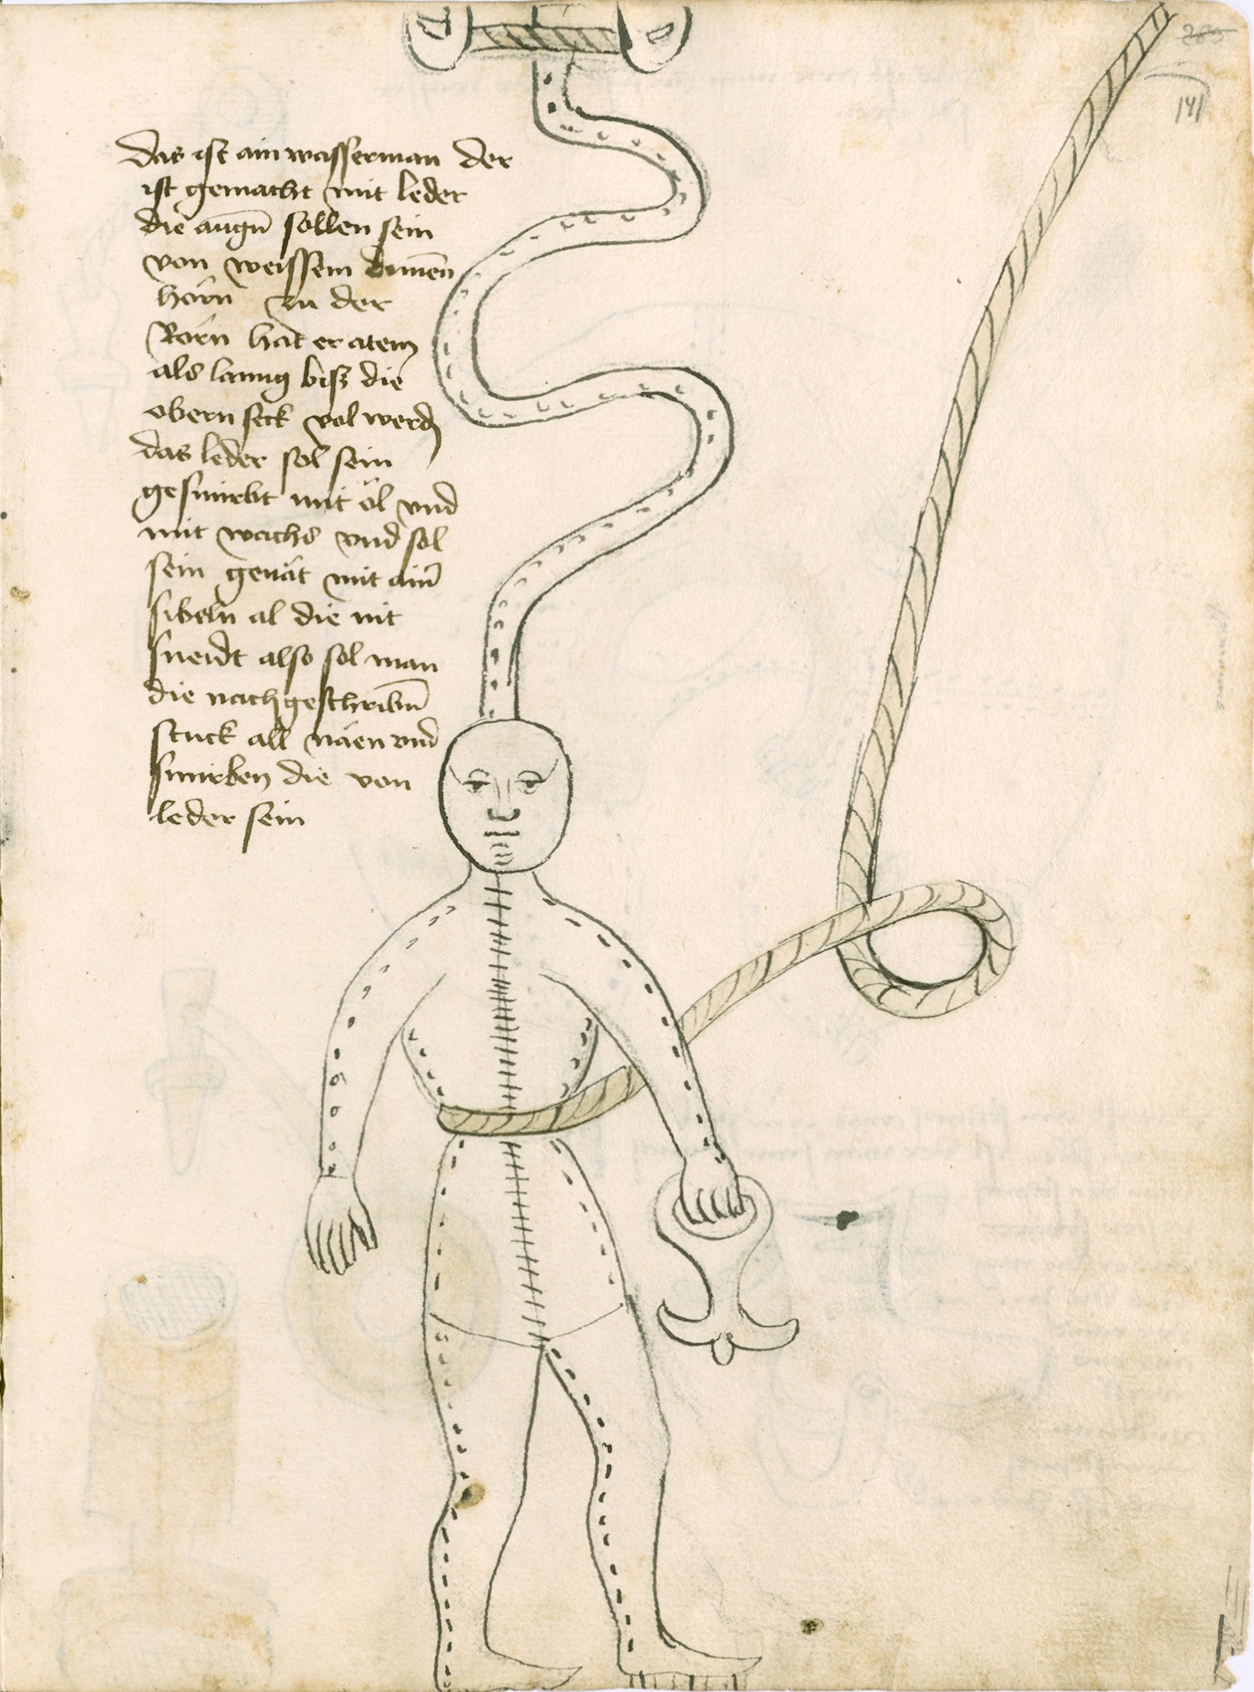 das ist ain wasserman der
ist gemacht mit leder
die augn̄ sollen sein
von weissem dinnēn
horn zu der
Rorn hat er atem
als lanng biß die
obern seck vol werdn
das leder sol sein
gesmirbt mit öl vnd
mit wachs vnd sol
sein genät mit ain̄
sibeln al die nit
sneidt also sol man
die nachgeschribn̄
stuck all näen vnd
smirben die von
leder sein
285
141